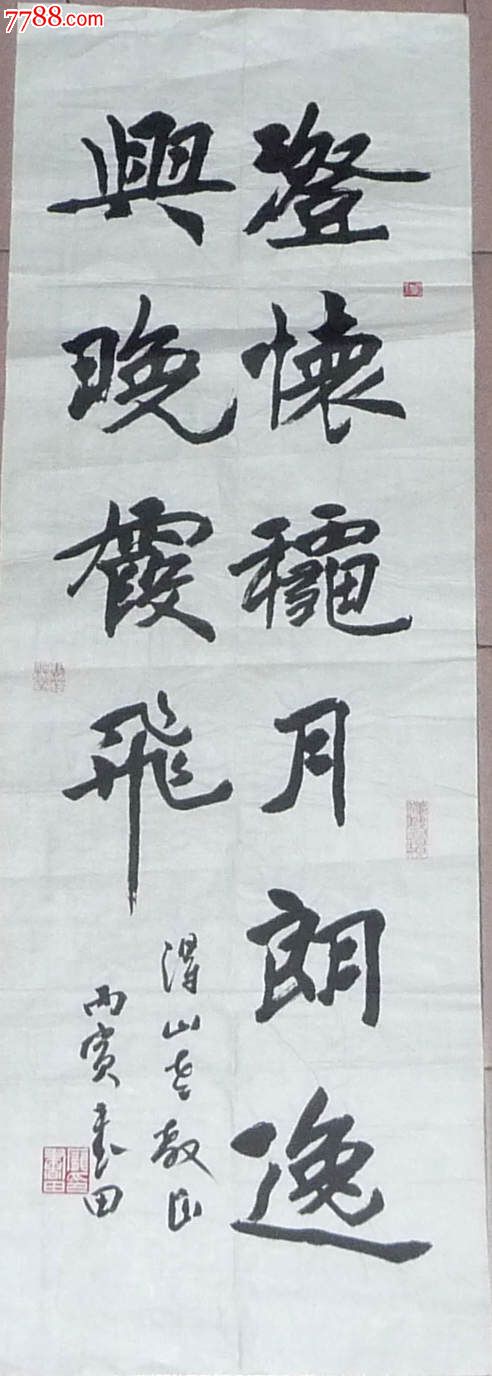 7788.com
澄懷龝月朗逸
興晚霞飛
得山老教正
丙寅書田